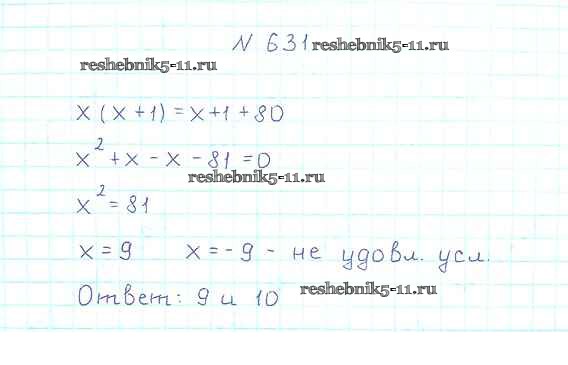 N 631 reshebnik5-11.ru
reshebnik5-11.ru
x (x+1) = x+1+80
x² + x - x - 81 = 0
reshebnik5-11.ru
x² = 81
x = 9 x = -9 - не удовл. усл.
Ответ: 9 и 10 reshebnik5-11.ru